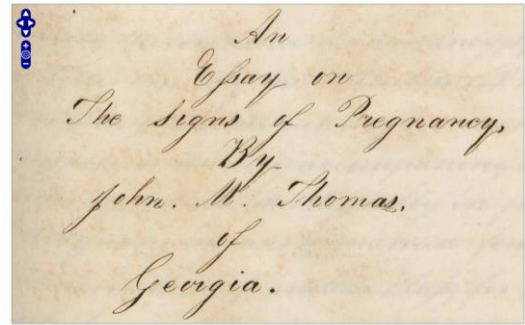 An
Essay on
The signs of Pregnancy,
By
John. M. Thomas.
of
Georgia.